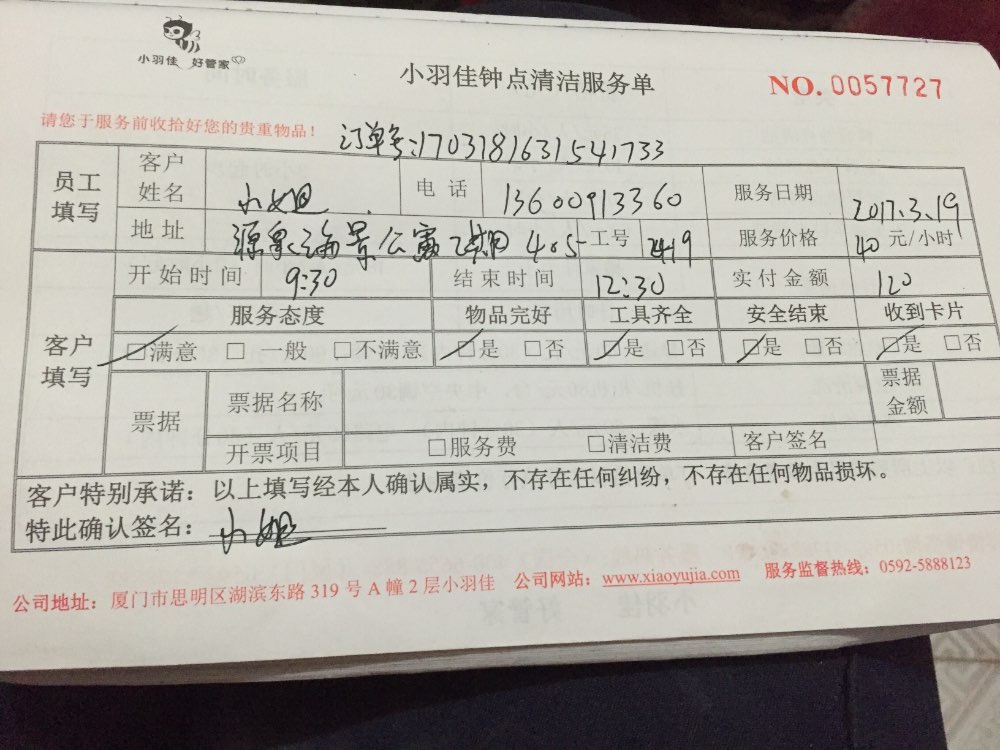 小羽佳 好管家
小羽佳钟点清洁服务单
NO. 0057727
请您于服务前收拾好您的贵重物品！
订单号:1703181631541733
员工填写 客户姓名 小姐 电话 13600913360 服务日期 2017.3.19
地址 源泉海景公寓 405 工号 2419 服务价格 40 元/小时
客户填写 开始时间 9:30 结束时间 12:30 实付金额 120
服务态度 物品完好 工具齐全 安全结束 收到卡片
☑满意 □一般 □不满意 ☑是 □否 ☑是 □否 ☑是 □否 ☑是 □否
票据 票据名称 票据金额
开票项目 □服务费 □清洁费 客户签名
客户特别承诺：以上填写经本人确认属实，不存在任何纠纷，不存在任何物品损坏。
特此确认签名：小姐
公司地址：厦门市思明区湖滨东路 319 号 A 幢 2 层小羽佳 公司网站：www.xiaoyujia.com 服务监督热线：0592-5888123